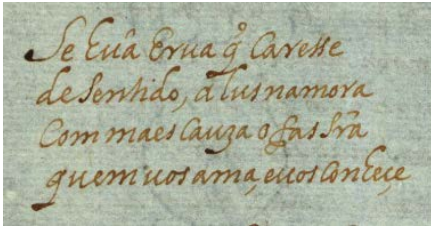 Se hũa Erua q̃ Caresse
de Sentido, a lus namora
Com maes Cauza o fas Srã
quem uos ama, e uos Conheçe